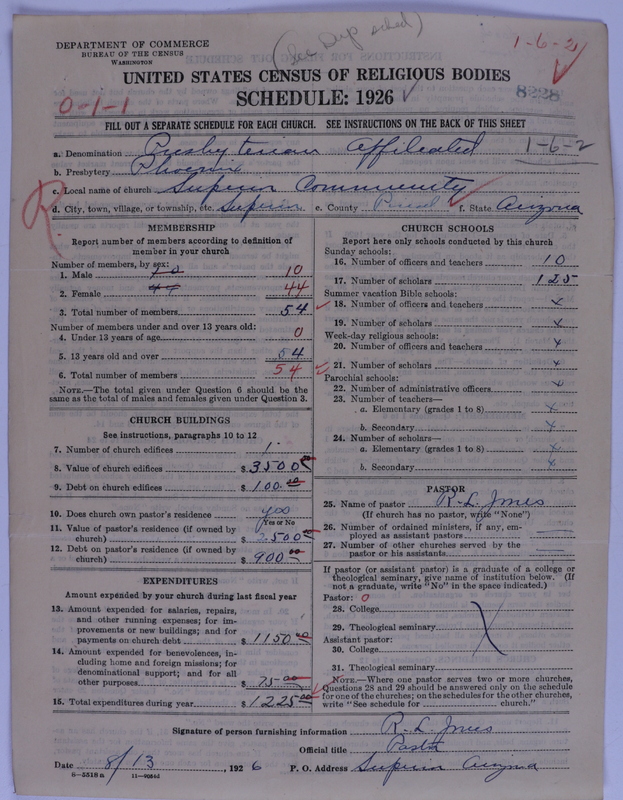 (See Dup sched)
DEPARTMENT OF COMMERCE
BUREAU OF THE CENSUS
WASHINGTON
1-6-2
UNITED STATES CENSUS OF RELIGIOUS BODIES
SCHEDULE: 1926
8228
0-1-1
FILL OUT A SEPARATE SCHEDULE FOR EACH CHURCH. SEE INSTRUCTIONS ON THE BACK OF THIS SHEET
a. Denomination Presbyterian Affiliated 1-6-2
b. Presbytery Phoenix
c. Local name of church Superior Community
d. City, town, village, or township, etc. Superior e. County Pinal f. State Arizona
R
MEMBERSHIP
Report number of members according to definition of member in your church
Number of members, by sex:
1. Male 10 10
2. Female 44 44
3. Total number of members 54
Number of members under and over 13 years old:
4. Under 13 years of age 0
5. 13 years old and over 54
6. Total number of members 54
NOTE.—The total given under Question 6 should be the same as the total of males and females given under Question 3.
CHURCH BUILDINGS
See instructions, paragraphs 10 to 12
7. Number of church edifices 1
8. Value of church edifices $ 3500 00
9. Debt on church edifices $ 100. 00
10. Does church own pastor's residence yes
(Yes or No
11. Value of pastor's residence (if owned by church) $ 2500 00
12. Debt on pastor's residence (if owned by church) $ 900 00
EXPENDITURES
Amount expended by your church during last fiscal year
13. Amount expended for salaries, repairs, and other running expenses; for improvements or new buildings; and for payments on church debt $ 1150 00
14. Amount expended for benevolences, including home and foreign missions; for denominational support; and for all other purposes $ 75 00
15. Total expenditures during year $ 1225 00
CHURCH SCHOOLS
Report here only schools conducted by this church
Sunday schools:
16. Number of officers and teachers 10
17. Number of scholars 125
Summer vacation Bible schools:
18. Number of officers and teachers x
19. Number of scholars x
Week-day religious schools:
20. Number of officers and teachers x
21. Number of scholars x
Parochial schools:
22. Number of administrative officers x
23. Number of teachers—
a. Elementary (grades 1 to 8) x
b. Secondary x
24. Number of scholars—
a. Elementary (grades 1 to 8) x
b. Secondary x
PASTOR
25. Name of pastor R. L. Jones
(If church has no pastor, write "None")
26. Number of ordained ministers, if any, employed as assistant pastors
27. Number of other churches served by the pastor or his assistants
If pastor (or assistant pastor) is a graduate of a college or theological seminary, give name of institution below. (If not a graduate, write "No" in the space indicated.)
Pastor: 0
28. College
29. Theological seminary
Assistant pastor:
30. College
31. Theological seminary
NOTE.—Where one pastor serves two or more churches, Questions 28 and 29 should be answered only on the schedule for one of the churches; on the schedules for the other churches, write "See schedule for church."
Signature of person furnishing information R. L. Jones
Official title Pastor
Date 8/13, 1926 P. O. Address Superior Arizona
6-5518a 11-9084d